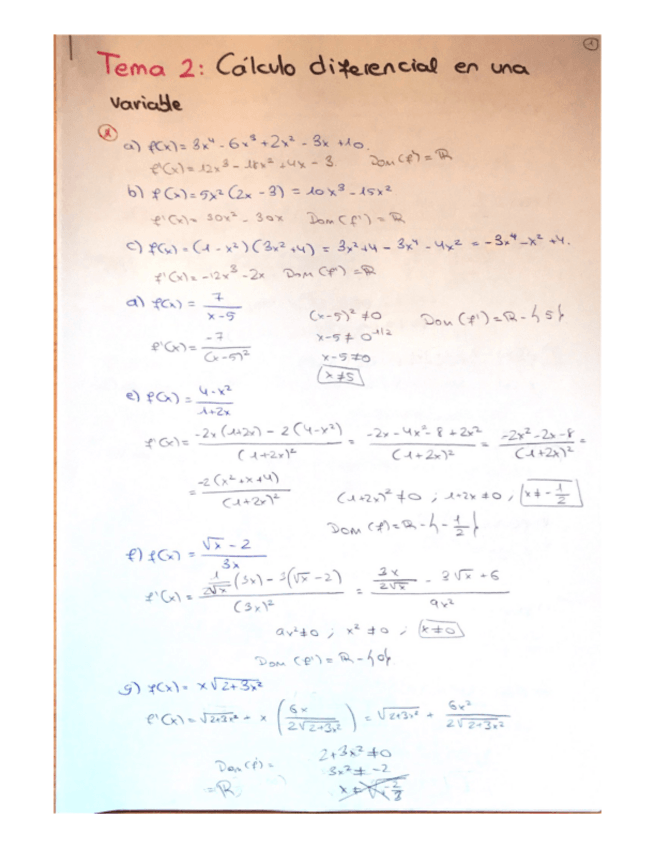 1
Tema 2: Cálculo diferencial en una
variable
1
a) f(x) = 3x⁴ - 6x³ + 2x² - 3x + 10.
f'(x) = 12x³ - 18x² + 4x - 3. Dom (f') = ℝ
b) f(x) = 5x² (2x - 3) = 10x³ - 15x²
f'(x) = 30x² - 30x Dom (f') = ℝ
c) f(x) = (1 - x²) (3x² + 4) = 3x² + 4 - 3x⁴ - 4x² = -3x⁴ - x² + 4.
f'(x) = -12x³ - 2x Dom (f') = ℝ
d) f(x) = 7/(x-5) (x-5)² ≠ 0 Dom (f') = ℝ - {5}
x-5 ≠ 0^1/2
f'(x) = -7/(x-5)² x-5 ≠ 0
x ≠ 5
e) f(x) = (4-x²)/(1+2x)
f'(x) = (-2x(1+2x) - 2(4-x²))/(1+2x)² = (-2x - 4x² - 8 + 2x²)/(1+2x)² = (-2x² - 2x - 8)/(1+2x)² =
= -2(x² + x + 4)/(1+2x)² (1+2x)² ≠ 0 ; 1+2x ≠ 0 , x ≠ -1/2
Dom (f') = ℝ - {-1/2}
f) f(x) = (√x - 2)/3x
f'(x) = (1/(2√x) (3x) - 3(√x - 2))/(3x)² = (3x/(2√x) - 3√x + 6)/9x²
9x² ≠ 0 ; x² ≠ 0 ; x ≠ 0
Dom (f') = ℝ - {0}
g) f(x) = x√(2+3x²)
f'(x) = √(2+3x²) + x (6x/(2√(2+3x²))) = √(2+3x²) + 6x²/(2√(2+3x²))
2+3x² ≠ 0
Dom (f') = 3x² ≠ -2
= ℝ x ≠ √(-2/3)